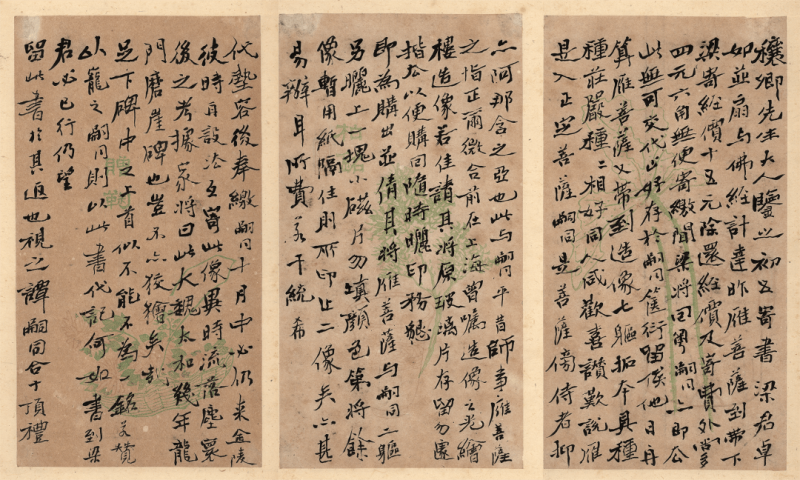 穰卿先生大人鑒之初五寄書梁君卓
如並扇与佛絵計達昨雁菩薩到帶下
梁寄經價十五元除還經價及寄費外尚多
四元六角無便寄繳聞梁將回粵嗣同亦即公
此無可交代山好存於嗣同篋衍留俟他日再
算雁菩薩又帶到造像七軀拓本具種
種莊嚴種二相好同人咸歡喜讚歎說雁
是入正定菩薩嗣同是菩薩傍侍者抑
亦阿那含之亞也此与嗣同平昔師事雁菩薩
之恉正爾微合前在上海曾囑造像之光繪
樓造像若佳請其將原玻璃片存留勿遽
揩去以便購回隨時曬印務懇
即為購出並倩其將雁菩薩与嗣同二軀
另曬上一塊小磁片勿填顏色第將餘
像暫用紙隔住則所印止二像矣亦甚
易辦耳所費若干統希
代墊容後奉繳嗣同十月中必仍来金陵
彼時再設法至寄此像異時流落塵寰
後之考據家將曰此大魏太和幾年龍
門磨崖碑也豈不亦狡獪矣哉
足下碑中之上首似不能不為一銘又贊
以寵之嗣同則以此書代記何如書到梁
君必已行仍望
留此書於其返也視之譚嗣同合十頂禮